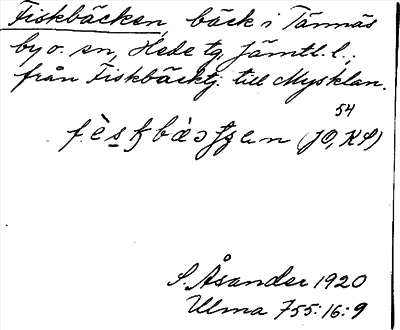 Fiskbäcken, bäck i Tännäs
by o. sn, Hede tg, Jämtl. l.;
från Fiskbäcktj. till Mysklan.
54
(JO, KS)
S. Åsander 1920
Ulma 755:16:9